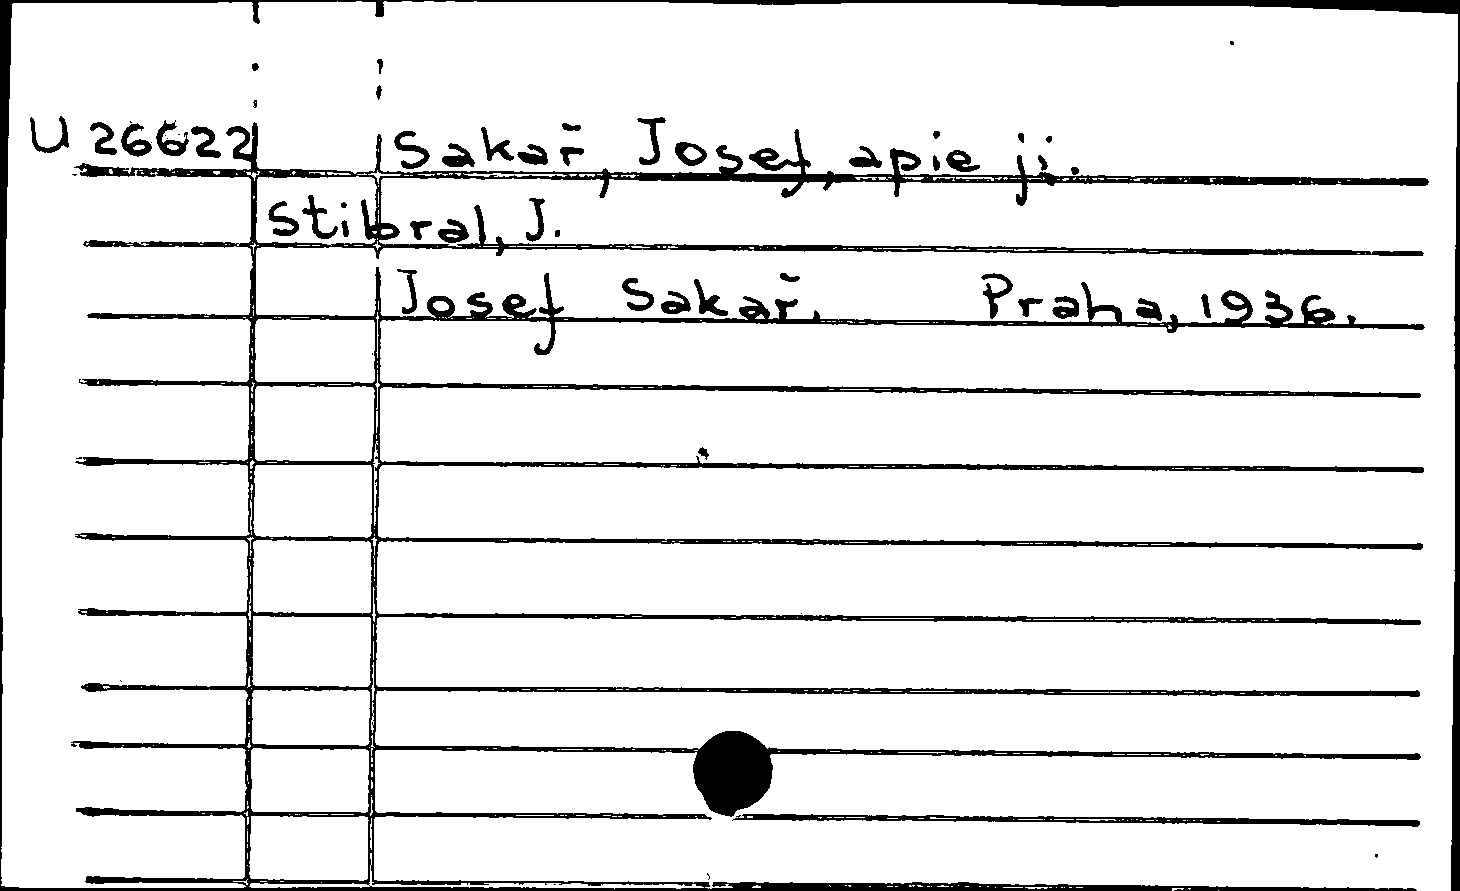 U 26622 Sakař, Josef, apie jį.
Stibral, J.
Josef Sakař. Praha, 1936.